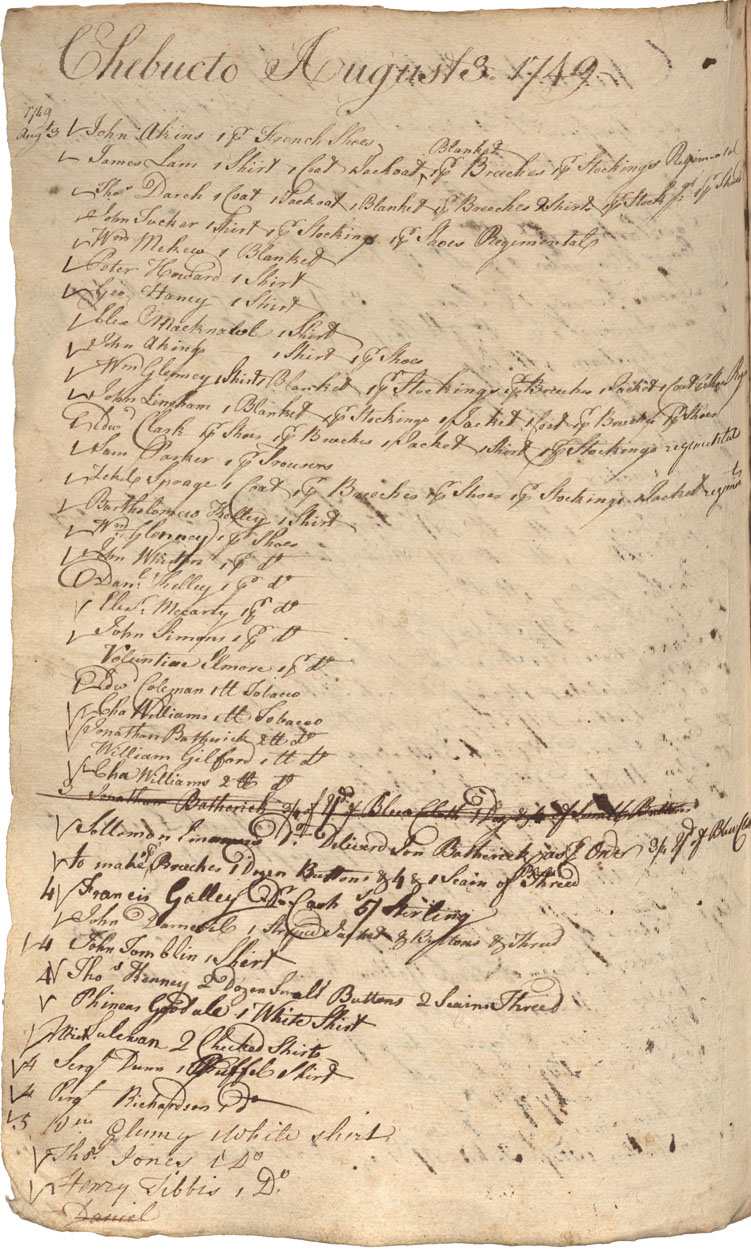 Chebucto August 3 1749
1749
Augt 3 John Akins 1 pr French Shoes
Blanket
James Lam 1 Shirt 1 Coat 1 Jackoat 1 pr Breeches 1 pr Stockings Regimental
Thos Darch 1 Coat 1 Jackoat 1 Blanket 1 pr Breeches 2 Shirts 1 pr Stock 1 pr Shoes
John Tucker 1 Shirt 1 pr Stockings 1 pr Shoes Regimentals
Wm Mehew 1 Blanket
Peter Howard 1 Shirt
Geo Haney 1 Shirt
1 Shirt
John Akins 1 Shirt 1 pr Shoes
Wm Glenney 1 Shirt 1 Blanket 1 pr Stockings 1 pr Breeches 1 Jacket 1 Coat
John Lingham 1 Blanket 1 pr Stockings 1 Jacket 1 Coat 1 pr Breeches 1 pr Shoes
Edwd Clark 1 pr Shoes 1 pr Breeches 1 Jacket 1 Shirt 1 pr Stockings regimental
Sam Parker 1 pr Trousers
Sprage 1 Coat 1 pr Breeches 1 pr Shoes 1 pr Stockings 1 Jacket
Bartholomew Kelley 1 Shirt
Wm Glenney 1 pr Shoes
John 1 pr do
Danl Kelley 1 pr do
Mccarty 1 pr do
John Simons 1 pr do
Elmore 1 pr do
Edwd Coleman 1 tt Tobacco
Cha Williams 1 tt Tobacco
Jonathan Batherick 2 tt do
William Gilford 1 tt do
Cha Williams 2 tt do
3 Jonathan Batherick 3/4 of yd of Blew Cloth 1 Doz & 4 of Small Buttons
Sollomon Dr Deliverd Jon Batherick 3/4 yd of Blew
to make Breeches 1 Dozen Buttons & 4 & 1 Scain of Threed
4 Francis Galley Dr Cash 5/ Stirling
John 1 Jacket & Buttons & Thred
4 John Tomblin 1 Shirt
4 Thos Kenney 2 Dozen Small Buttons 2 Scains Threed
Phineas Goodale 1 White Shirt
Sulevan 2 Checked Shirts
4 Sergt Dunn 1 Ruffel Shirt
4 Sergt Richardson 1 Do
5 Wm Glenny 1 White shirt
Thos Jones 1 Do
Henry Tibbis 1 Do
Daniel